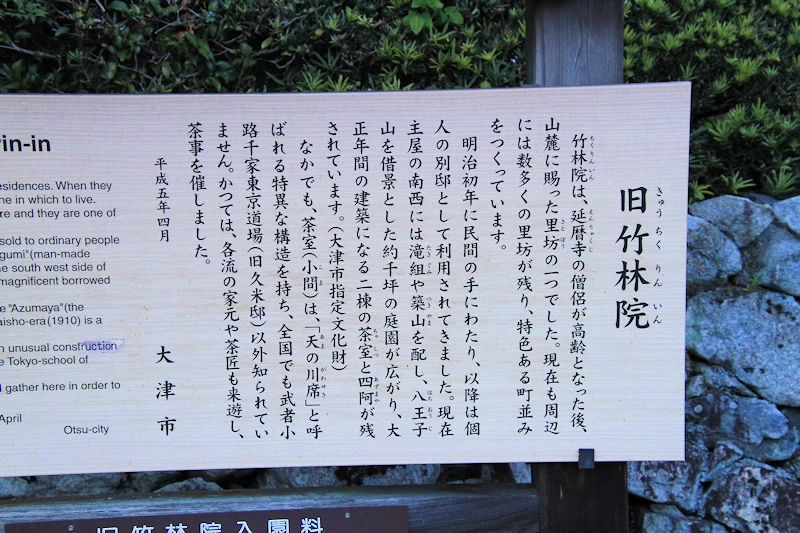 旧竹林院
きゅう ちく りん いん
竹林院は、延暦寺の僧侶が高齢となった後、
山麓に賜った里坊の一つでした。現在も周辺
には数多くの里坊が残り、特色ある町並み
をつくっています。
明治初年に民間の手にわたり、以降は個
人の別邸として利用されてきました。現在
主屋の南西には滝組や築山を配し、八王子
山を借景とした約千坪の庭園が広がり、大
正年間の建築になる二棟の茶室と四阿が残
されています。(大津市指定文化財)
なかでも、茶室(小間)は、「天の川席」と呼
ばれる特異な構造を持ち、全国でも武者小
路千家東京道場(旧久米邸)以外知られてい
ません。かつては、各流の家元や茶匠も来遊し、
茶事を催しました。
平成五年四月
大津市
rin-in
esidences. When they
ne in which to live.
re and they are one of
sold to ordinary people
gumi"(man-made
he south west side of
magnificent borrowed
e "Azumaya"(the
aisho-era(1910) is a
n unusual construction
e Tokyo-school of
d gather here in order to
April
Otsu-city
旧竹林院入園料